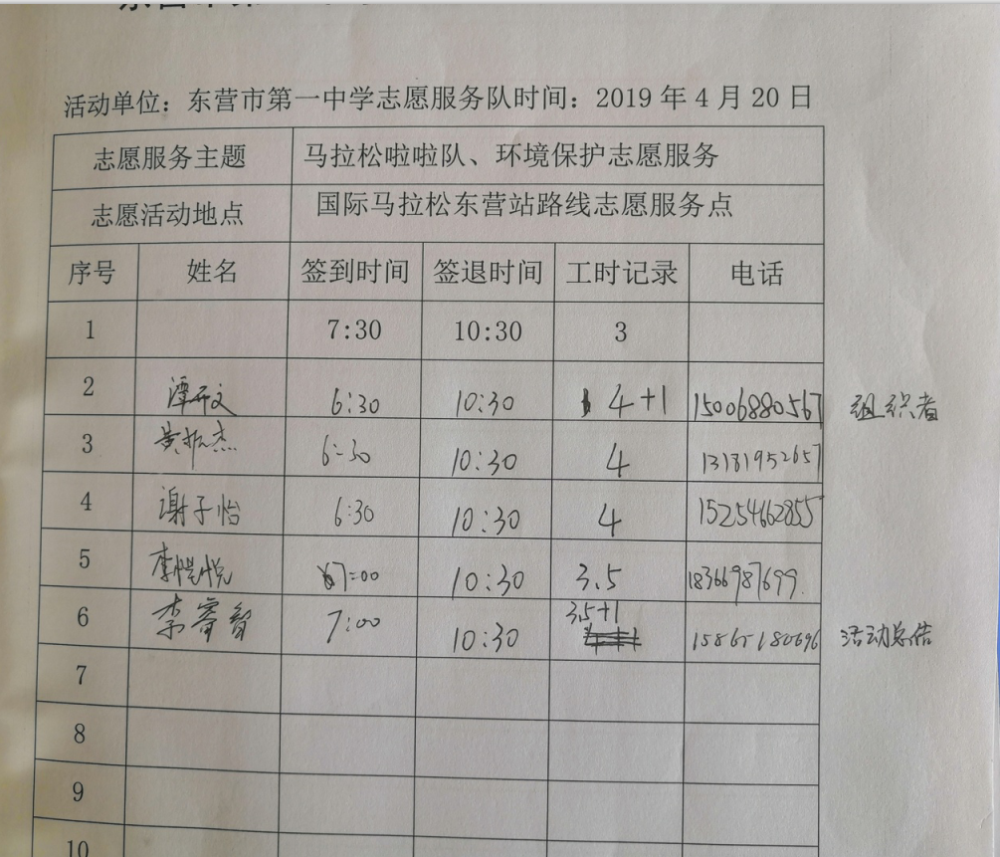 活动单位：东营市第一中学志愿服务队时间：2019 年 4 月 20 日
志愿服务主题 马拉松啦啦队、环境保护志愿服务
志愿活动地点 国际马拉松东营站路线志愿服务点
序号 姓名 签到时间 签退时间 工时记录 电话
1 7:30 10:30 3
2 谭开文 6:30 10:30 4+1 15006880567 组织者
3 黄振杰 6:30 10:30 4 13181952657
4 谢子怡 6:30 10:30 4 15254662855
5 李恺悦 7:00 10:30 3.5 18366987699
6 李睿智 7:00 10:30 3.5+1 15865180696 活动总结
7
8
9
10